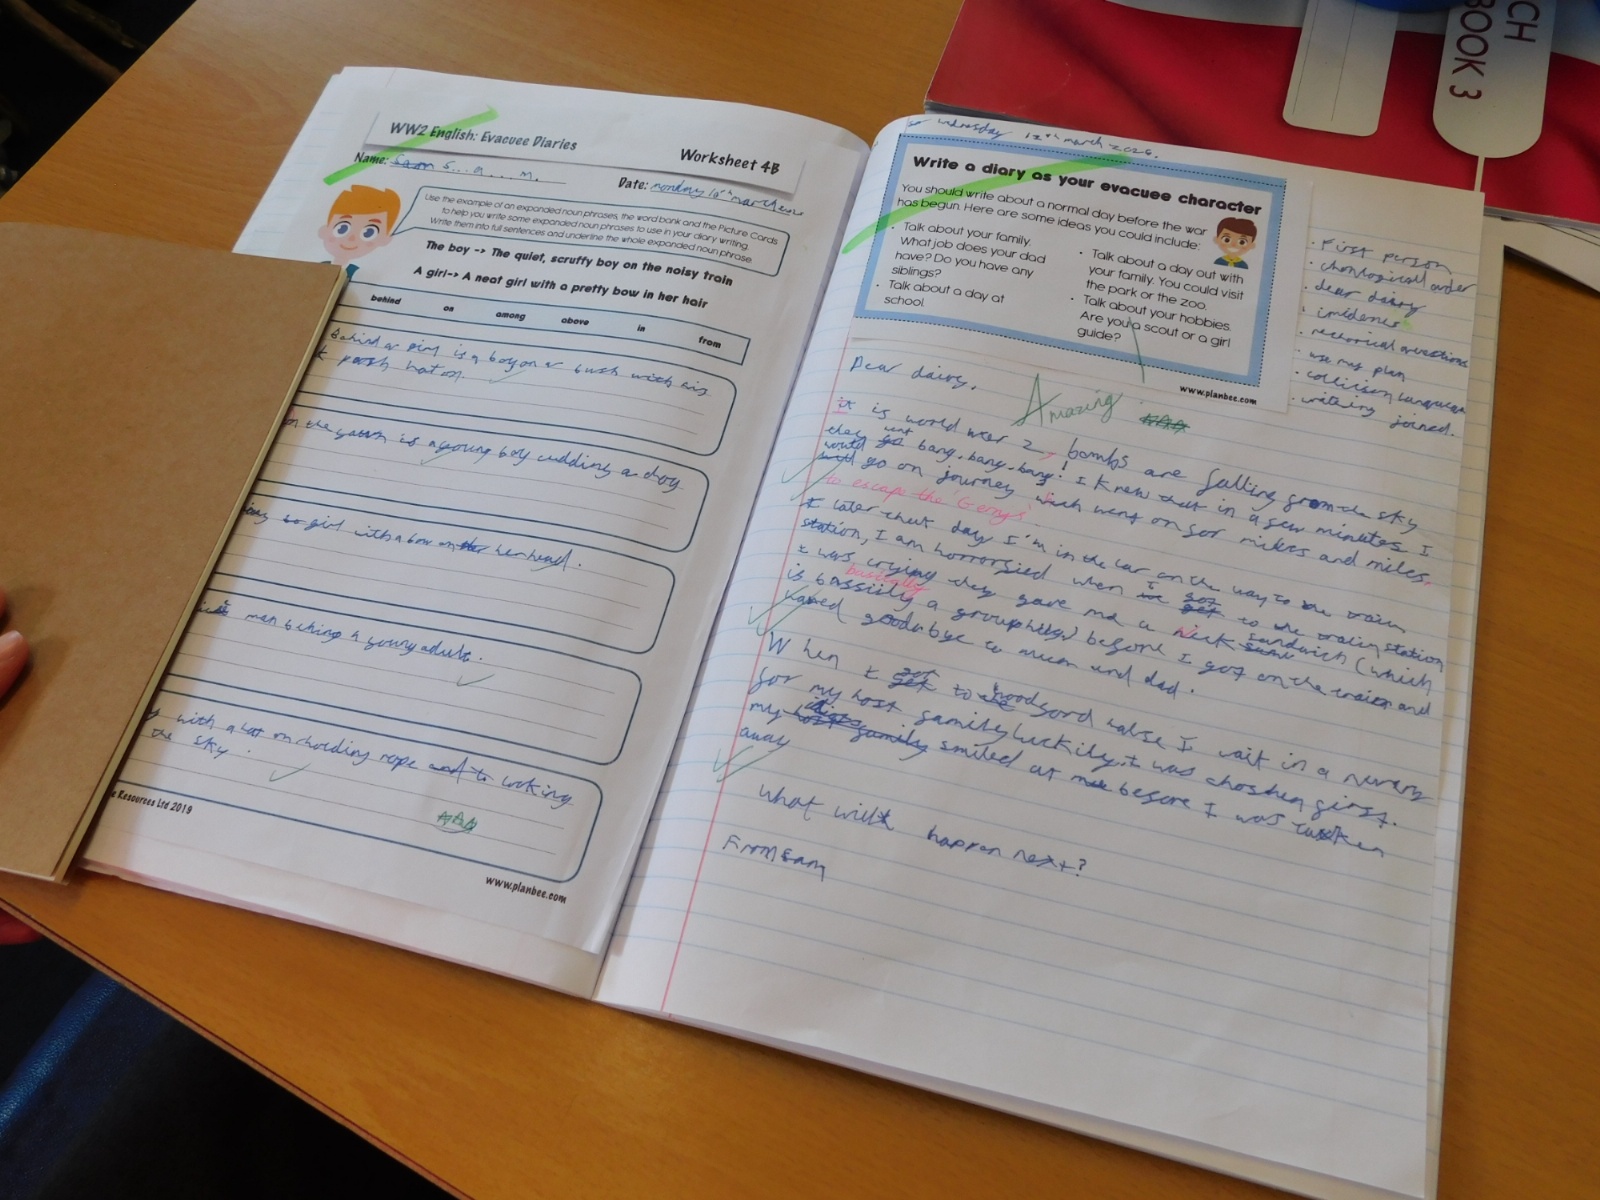 WW2 English: Evacuee Diaries
Worksheet 4B
Name: Sam S...a...m.
Date: monday 10th march
Use the example of an expanded noun phrases, the word bank and the Picture Cards
to help you write some expanded noun phrases to use in your diary writing.
Write them into full sentences and underline the whole expanded noun phrase.
The boy -> The quiet, scruffy boy on the noisy train
A girl-> A neat girl with a pretty bow in her hair
behind on among above in from
behind a girl is a boy on a bush with his
posh hat on.
on the is a young boy cudding a dog
girl with a bow on her head.
man behing a young adult.
with a hat on holding rope and to looking
the sky.
Resources Ltd 2019
www.planbee.com
wdnesday 12th march 2026.
Write a diary as your evacuee character
You should write about a normal day before the war
has begun. Here are some ideas you could include:
• Talk about your family.
What job does your dad
have? Do you have any
siblings?
• Talk about a day at
school.
• Talk about a day out with
your family. You could visit
the park or the zoo.
• Talk about your hobbies.
Are you a scout or a girl
guide?
www.planbee.com
• First person
• chonlogical order
• dear dairy
•
• questions
• use my plan
• language
• writing joined.
Dear dairy,
Amazing
it is world wer 2, bombs are falling from the sky
they went bang, bang, bang! I knew that in a few minutes I
would go on journey wich went on for miles and miles.
to escape the 'Gerrys'
later that day I'm in the car on the way to the train
station, I am horrorsied when I got to the train station
I was crying they gave me a sandwich (which
basically
is bassiily a group ) before I got on the train and
goodabye to mum and dad.
When I got to I wait in a
for my host family luckily, it was choshen first.
my smiled at me before I was taken
away
What will happen next?
From
CH
BOOK 3